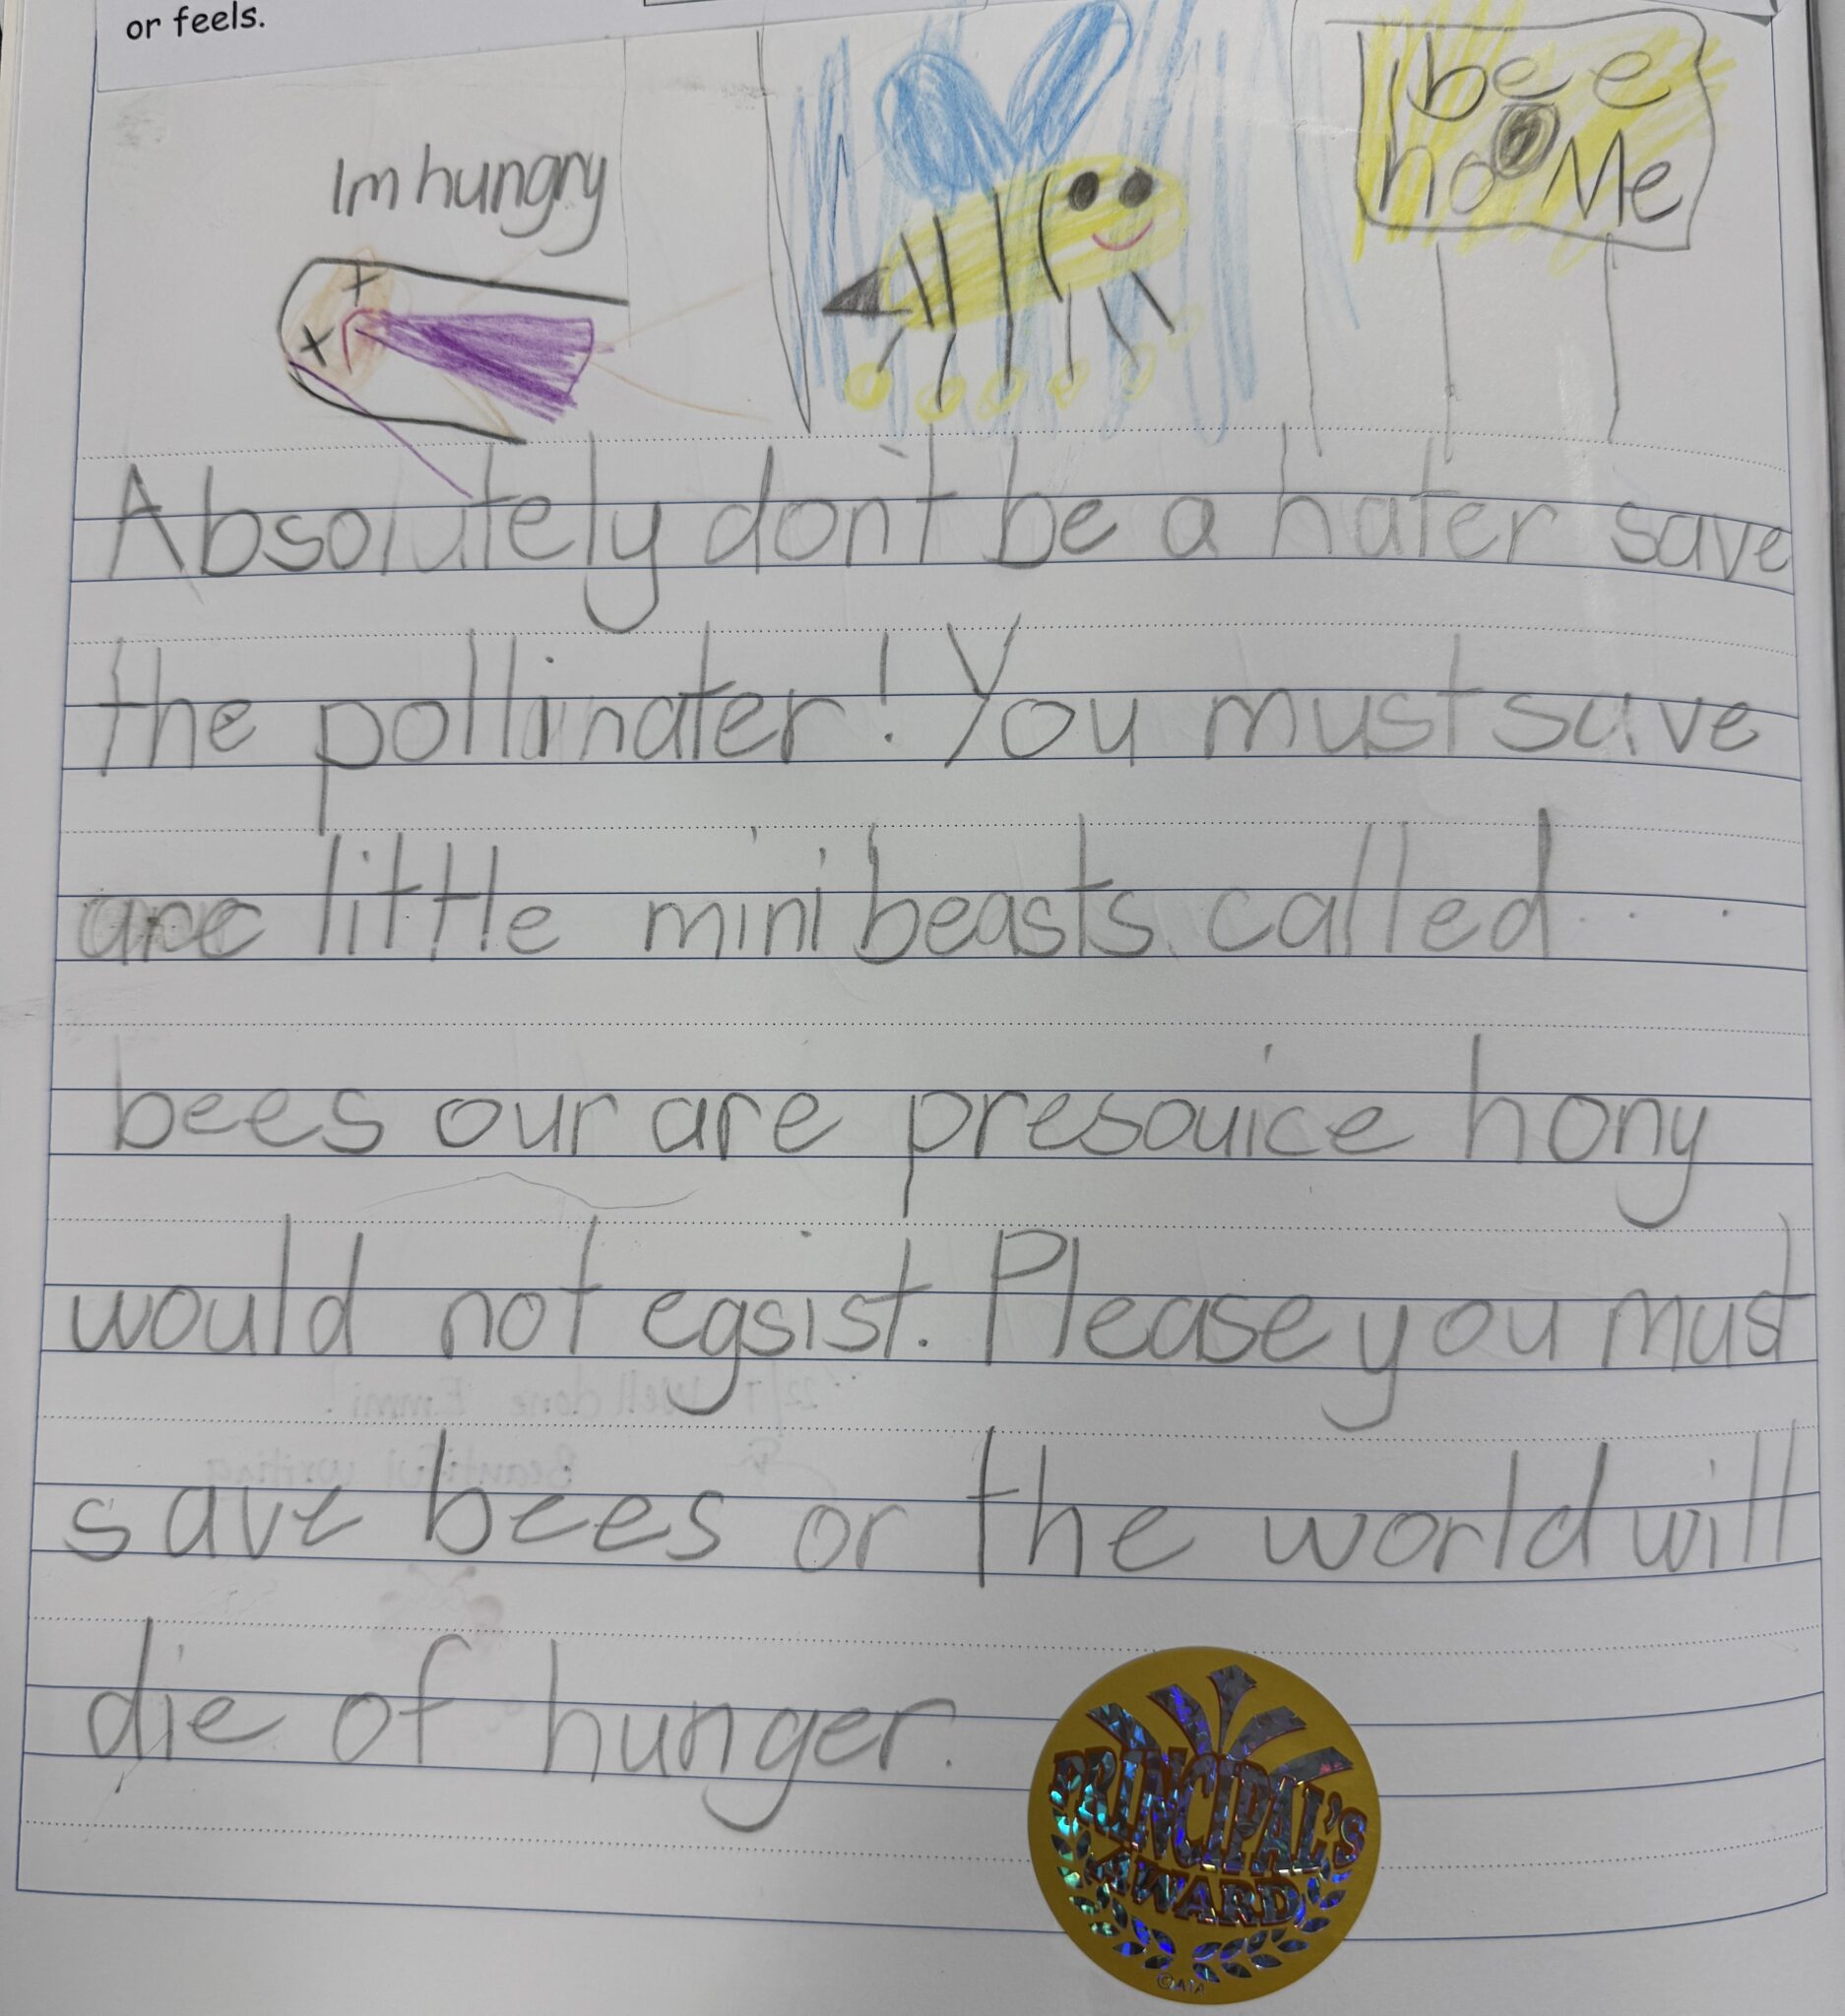 or feels.
Im hungry
bee
home
Absolutely don't be a hater save
the pollinater! You must save
are little mini beasts called...
bees our are presouice hony
would not egsist. Please you must
save bees or the world will
die of hunger.
PRINCIPAL'S
AWARD